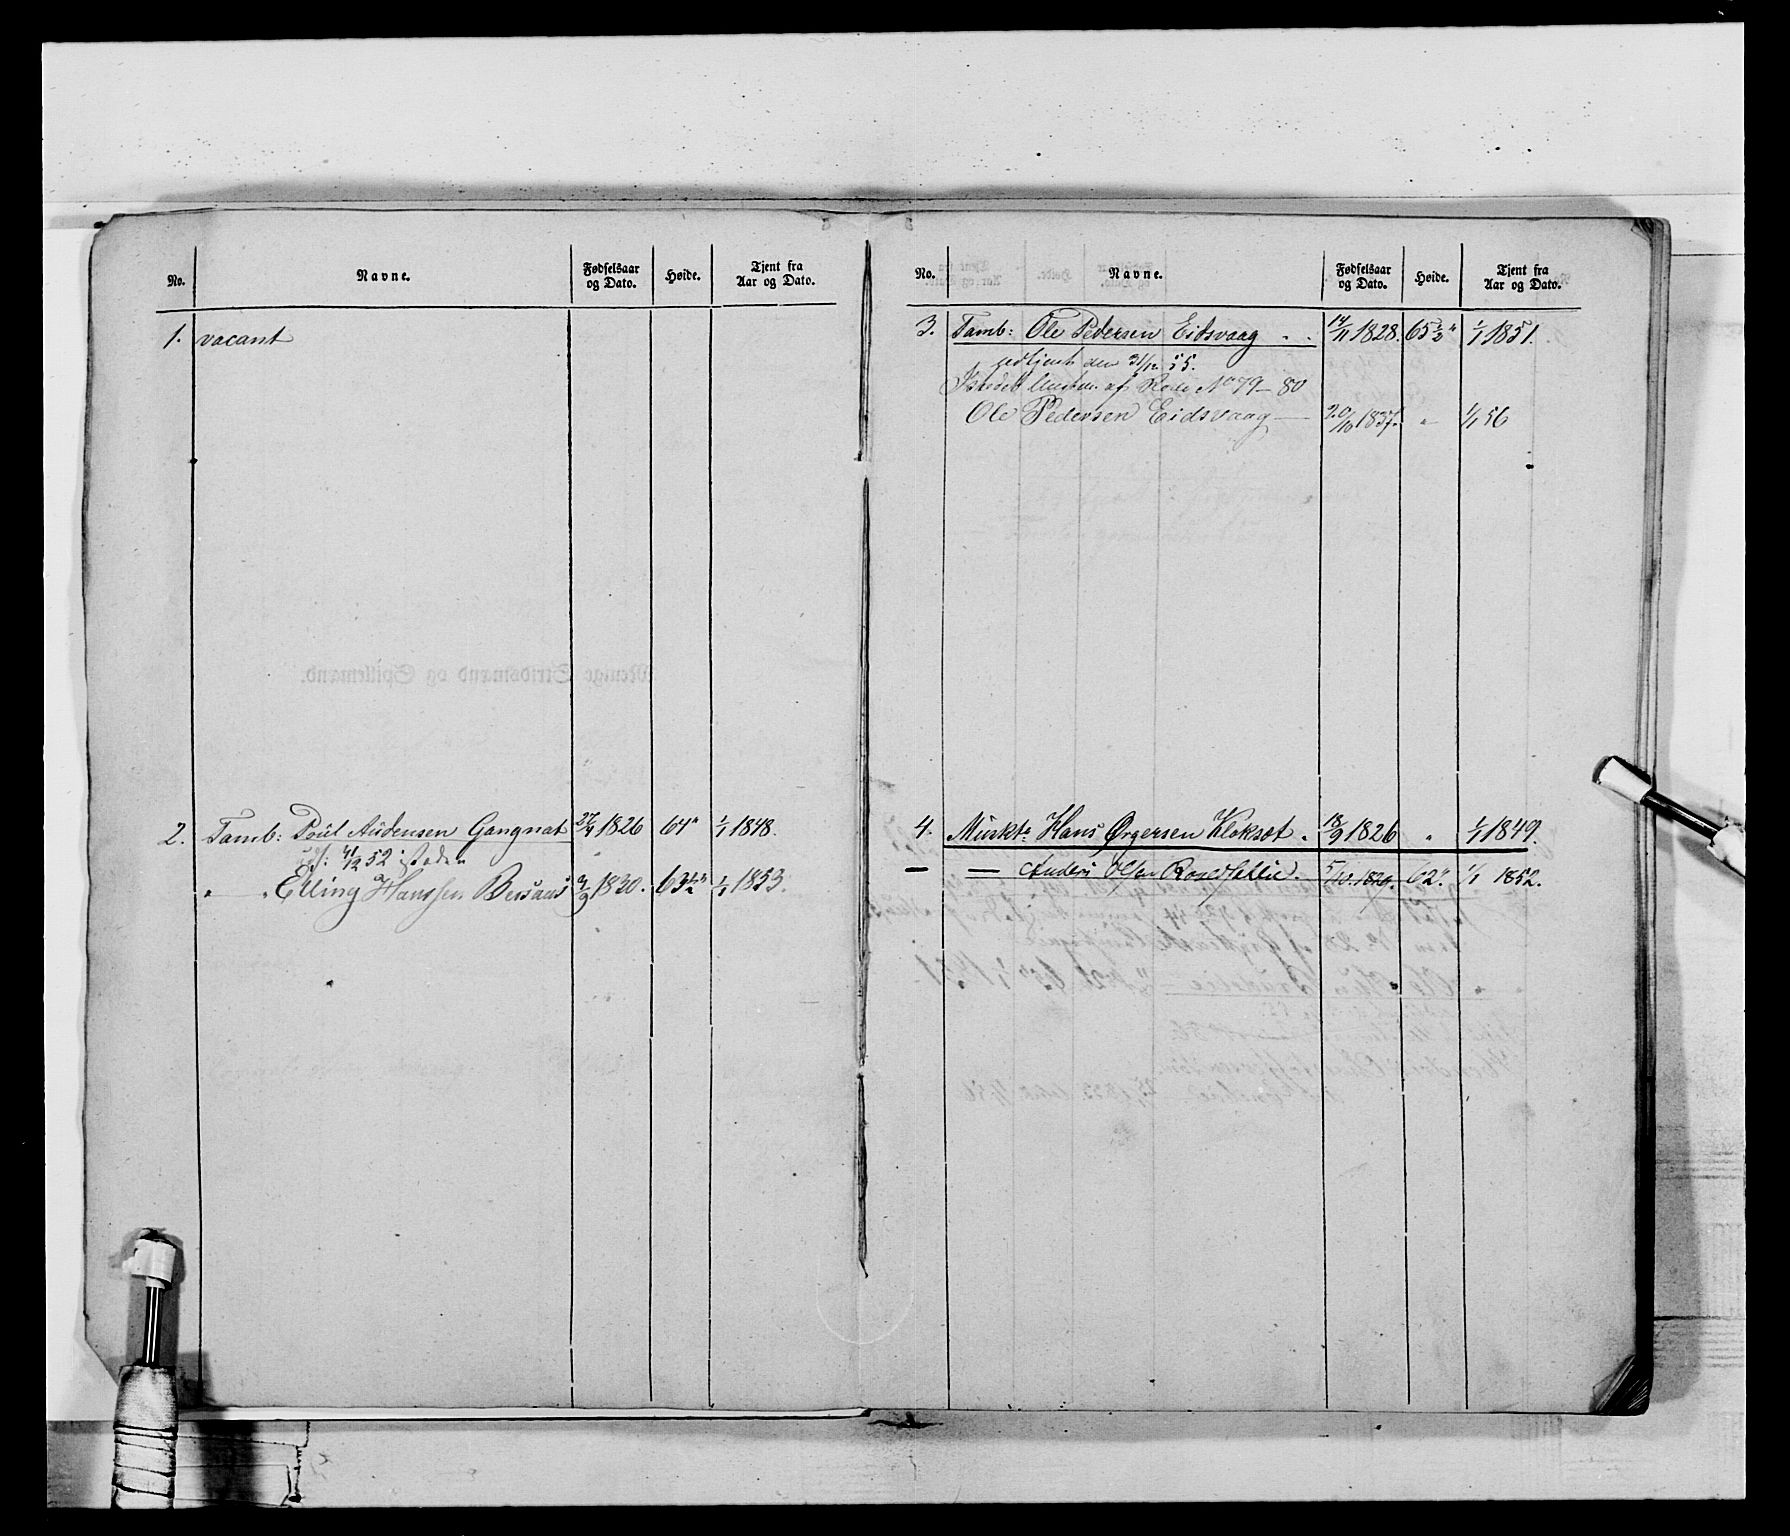 No. Navne. Fødselsaar og Dato. Høide. Tjent fra Aar og Dato.
1. vacant
2. Tamb: Poul Audensen Gangnat 27/4 1826 64" 1/1 1848.
udt: 31/12 52 isteden
" " Elling Hanssen 1830. 63 1/2" 1/1 1853.
No. Navne. Fødselsaar og Dato. Høide. Tjent fra Aar og Dato.
3. Tamb: Ole Pedersen Eidsvaag 14/11 1828. 65 1/2" 1/1 1851.
udtjent den 31/12 55.
Istedet af Rode No 79-80
Ole Pedersen Eidsvaag 20/10 1837. " 1/1 56
4. Muskt: Hans Ørgersen Kloksæt 18/9 1826 " 1/1 1849.
— — Anders Olsen 5/10 1829. 62". 1/1 1852.
Menige Stridsmænd og Spillemænd.